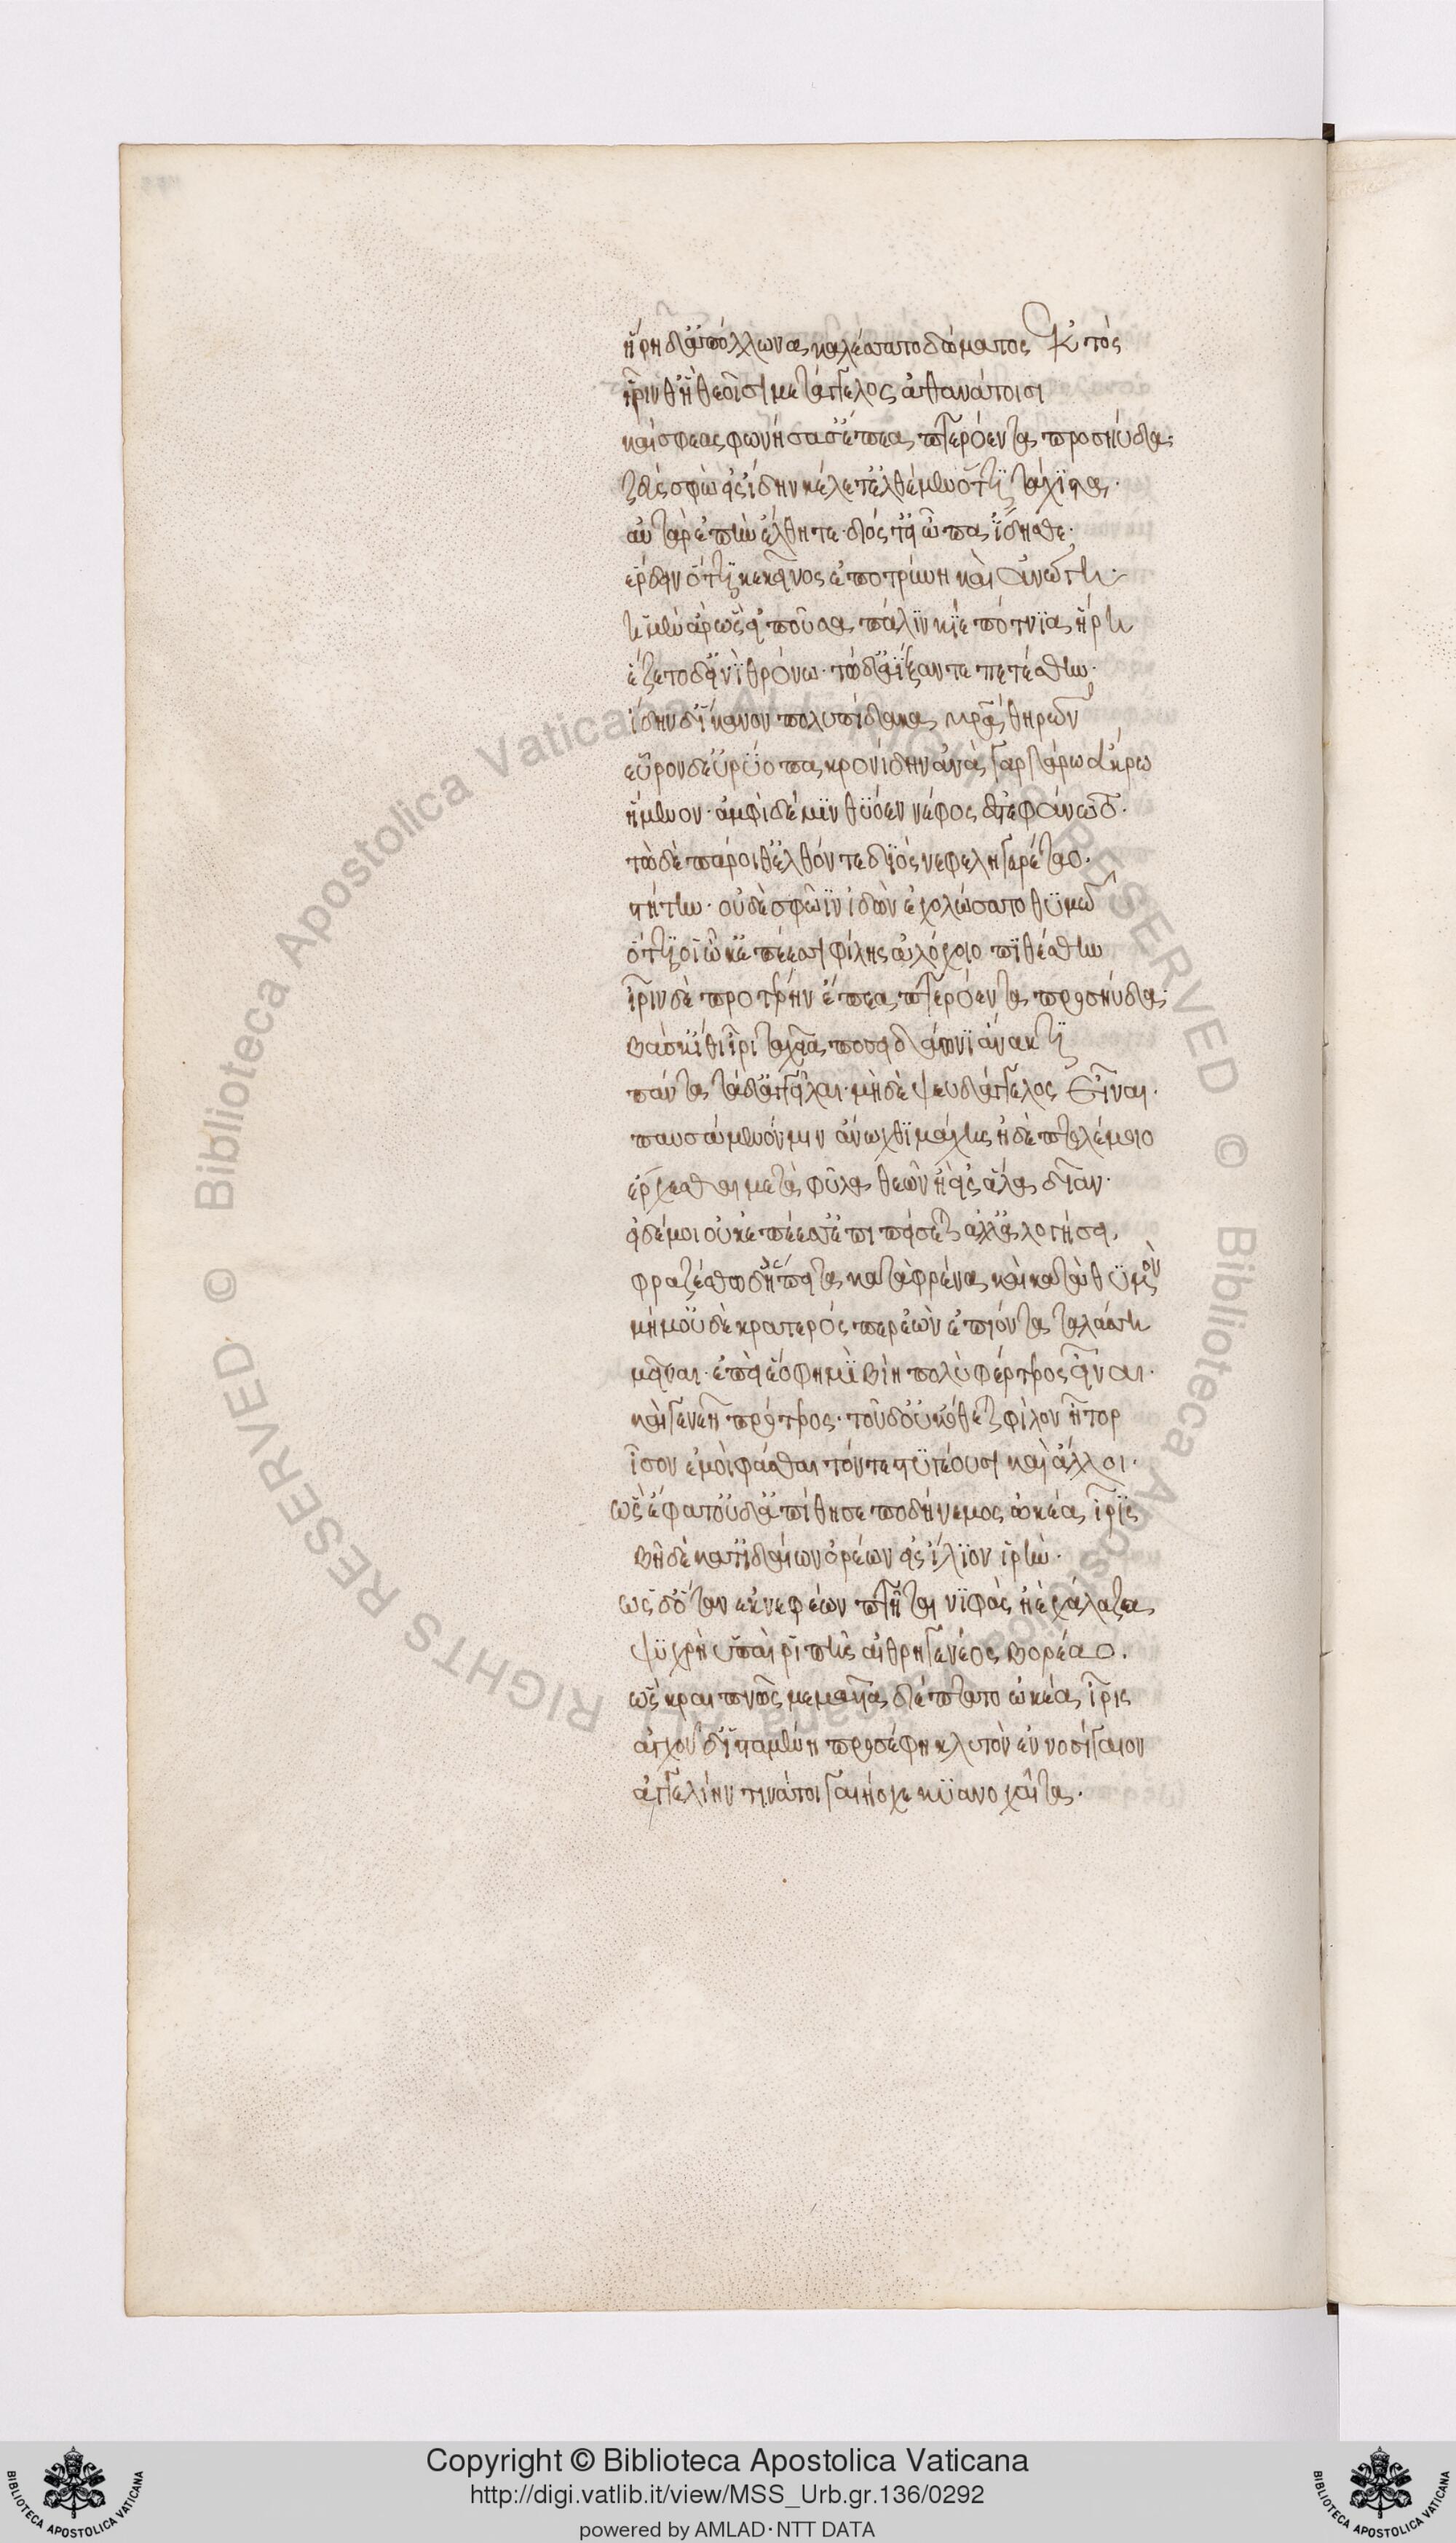 ἥρη δ' ἀπόλλωνα καλέσατο δώματος ἐκτὸς
ἶρίν θ' ἥ θεοῖσι μετάγγελος ἀθανάτοισι
καί σφεας φωνήσασ' ἔπεα πτερόεντα προσηύδα·
ζεὺς σφὼ εἰς ἴδην κέλετ' ἐλθέμεν ὅττι τάχιστα·
αὐτὰρ ἐπὴν ἔλθητε· διός τ' εἰς ὦπα ἴδησθε·
ἔρδειν ὅττι κε κεῖνος ἐποτρύνη καὶ ἀνώγη·
ἡ μὲν ἄρ ὣς εἰποῦσα πάλιν κίε πότνια ἥρη
ἕζετο δ' εἰνὶ θρόνω· τὼ δ' ἀΐξαντε πετέσθην·
ἴδην δ' ἵκανον πολυπίδακα μητέρα θηρῶν
εὗρον δ' εὐρύοπα κρονίδην ἀνὰ γαργάρω ἄκρω
ἥμενον· ἀμφὶ δέ μιν θυόεν νέφος ἐστεφάνωτο·
τὼ δὲ πάροιθ' ἐλθόντε διὸς νεφεληγερέταο·
στήτην· οὐδὲ σφῶϊν ἰδὼν ἐχολώσατο θυμῶ
ὅττί οἱ ὦκ' ἐπέεσσι φίλης ἀλόχοιο πιθέσθην
ἶριν δὲ προτέρην ἔπεα πτερόεντα προσηύδα·
βάσκ' ἴθι ἶρι ταχεῖα ποσειδάωνι ἄνακτι
πάντα τάδ' ἀγγεῖλαι· μὴ δὲ ψευδάγγελος εἶναι·
παυσάμενόν μιν ἄνωχθι μάχης ἠδὲ πτολέμοιο
ἔρχεσθαι μετὰ φῦλα θεῶν ἢ εἰς ἅλα δῖαν·
εἰ δέ μοι οὐκ ἐπέεσσ' ἐπιπείσεται ἀλλ' ἀλογήσει
φραζέσθω δὴ ἔπειτα κατὰ φρένα καὶ κατὰ θυμὸν
μή μ' οὐδὲ κρατερός περ ἐὼν ἐπιόντα ταλάσση
μεῖναι· ἐπεὶ ἕο φημὶ βίη πολὺ φέρτερος εἶναι·
καὶ γενεῆ πρότερος· τοῦ δ' οὐκ ὄθεται φίλον ἦτορ
ἶσον ἐμοὶ φάσθαι τόν τε στυγέουσι καὶ ἄλλοι·
ὣς ἔφατ' οὐδ' ἀπίθησε ποδήνεμος ὠκέα ἶρις
βῆ δὲ κατ' ἰδαίων ὀρέων εἰς ἴλιον ἱρὴν·
ὡς δ' ὅταν ἐκ νεφέων πτῆται νιφὰς ἠὲ χάλαζα
ψυχρὴ ὑπαὶ ῥιπῆς αἰθρηγενέος βορέαο.
ὣς κραιπνῶς μεμαυῖα διέπτατο ὠκέα ἶρις
ἀγχοῦ δ' ἱσταμένη προσέφη κλυτὸν ἐννοσίγαιον
ἀγγελίην τινά τοι γαιήοχε κυανοχαῖτα·
Copyright © Biblioteca Apostolica Vaticana
http://digi.vatlib.it/view/MSS_Urb.gr.136/0292
powered by AMLAD·NTT DATA